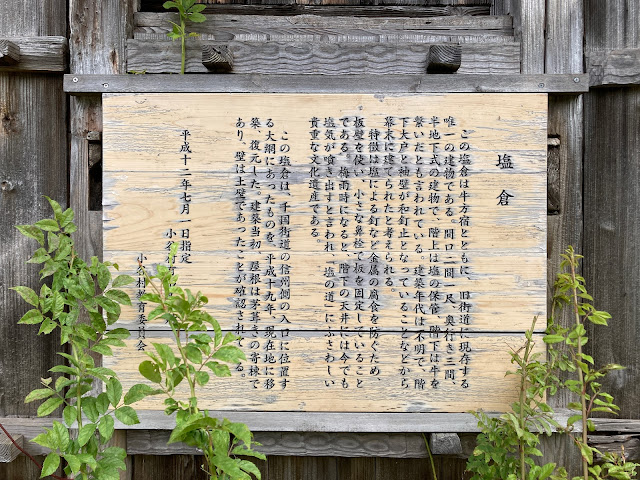 塩倉
この塩倉は牛方宿とともに、旧街道に現存する
唯一の建物である。間口二間一尺、奥行き三間、
半地下式の建物で、階上は塩の保管、階下は牛を
繋いだとも言われている。建築年代は不明で、階
下大戸と袖壁が和釘止となっていることなどから
幕末に建てられたと考えられる。
特徴は塩による釘など金属の腐食を防ぐため、
板壁を使い、小さな鼻栓で板を固定していること
である。梅雨時になると、階下の天井には今でも
塩気が噴き出すと言われ、「塩の道」にふさわしい
貴重な文化遺産である。
この塩倉は、千国街道の信州側の入口に位置す
る大網にあったものを、平成十九年、現在地に移
築、復元した。建築当初、屋根は茅葺きの寄棟で
あり、壁は土壁であったことが確認されている。
平成十二年七月一日指定
小谷村
小谷村教育委員会